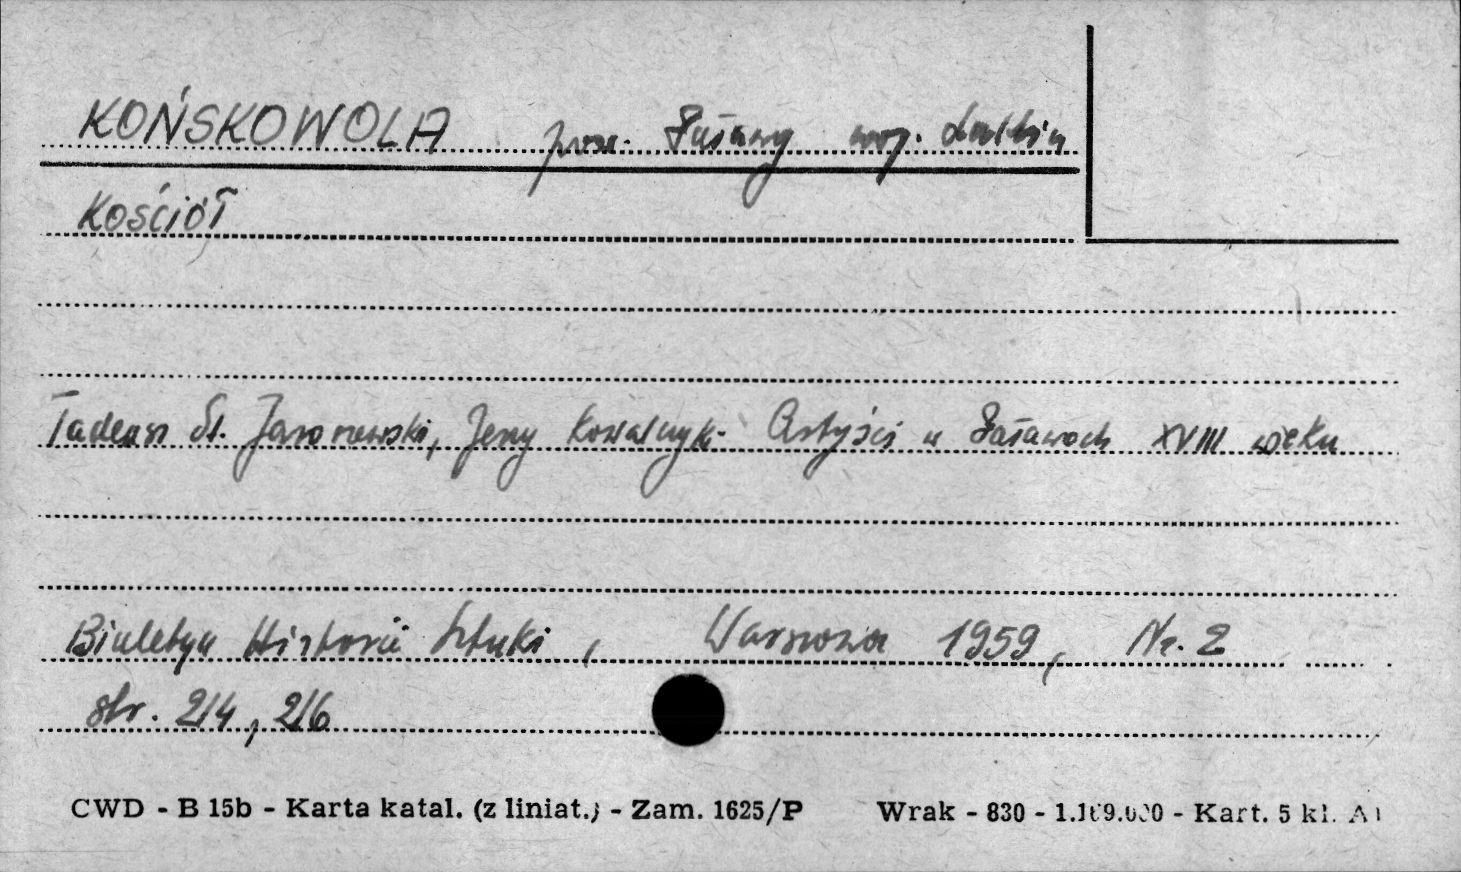 KOŃSKOWOLA pow. Puławy woj. Lublin
KOŚCIÓŁ
Tadeusz St. Jaroszewski, Jerzy Kowalczyk - Artyści w Puławach XVIII wieku
Biuletyn Historii Sztuki, Warszawa 1959, Nr. 2
str. 214, 216
CWD - B 15b - Karta katal. (z liniat.) - Zam. 1625/P Wrak - 830 - Kart. 5 kl.